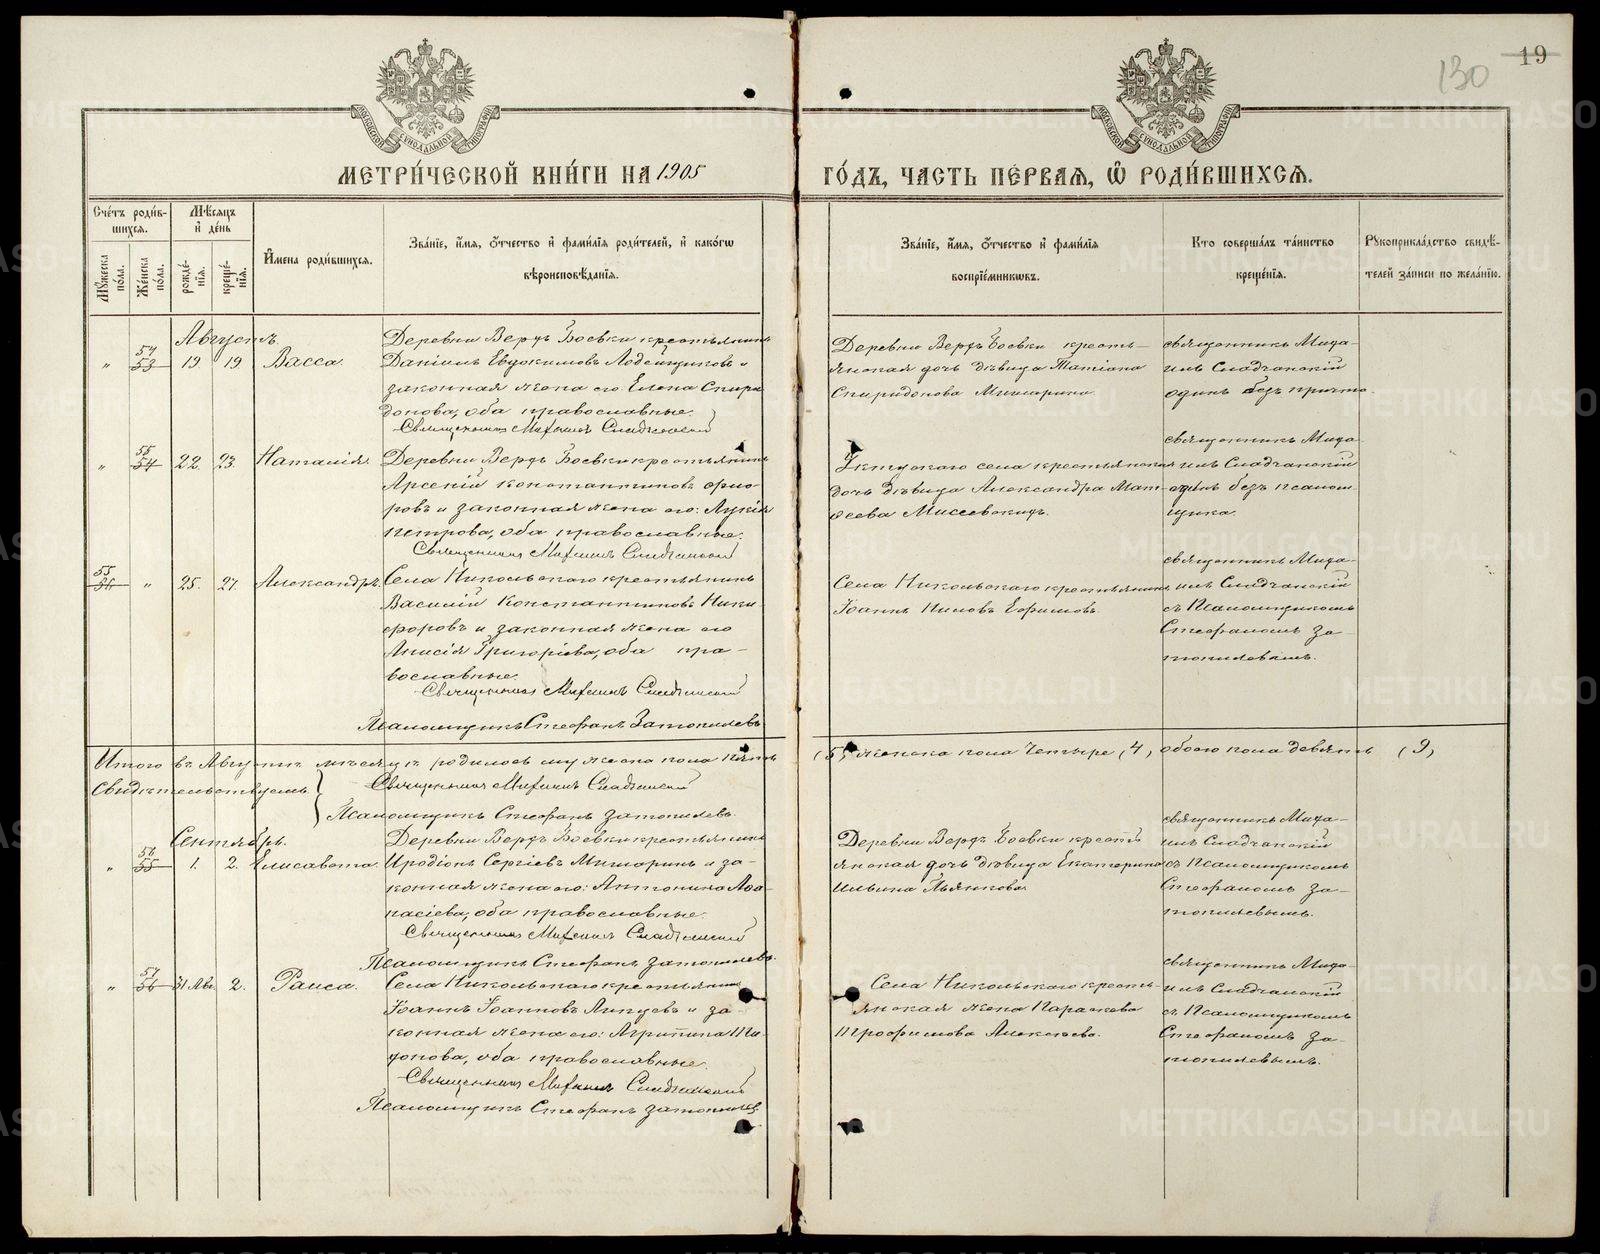 130
19
МОСКОВСКОЙ СѴНОДАЛЬНОЙ ТИПОГРАФІИ
МОСКОВСКОЙ СѴНОДАЛЬНОЙ ТИПОГРАФІИ
МЕТРИ́ЧЕСКОЙ КНИ́ГИ НА 1905
ГО́ДЪ, ЧАСТЬ ПЕ́РВАЯ, Ѽ РОДИ́ВШИХСЯ.
Счётъ роди́в-
шихся.
Мѣсяцъ
и де́нь
Мꙋ́жеска
по́ла.
Же́нска
по́ла.
рожде́-
нїя.
креще́-
нїя.
И҆мена роди́вшихся.
Зва́нїе, и҆́мя, Ѻ҆́тчество и҆ фами́лїя роди́телей, и҆ како́гѡ
вѣроисповѣ́данїя.
Зва́нїе, и҆́мя, Ѻ҆́тчество и҆ фами́лїя
воспрїе́мниковъ.
Кто соверша́лъ та́инство
креще́нїя.
Рꙋкоприкла́дство свидѣ́-
телей за́писи по жела́нїю.
Августъ.
„ 54 53 19 19 Васса.
Деревни Верхъ Боевки крестьянинъ
Даніилъ Евдокимовъ и
законная жена его Елена Спири
донова, оба православные.
Священникъ Михаилъ Сладчанскій
Деревни Верхъ Боевки кресть-
янская дочь дѣвица Татіана
Спиридонова Мишарина.
священникъ Миха-
илъ Сладчанскій
одинъ безъ причта.
„ 55 54 22. 23. Наталія.
Деревни Верхъ Боевки крестьянинъ
Арсеній Константиновъ
и законная жена его: Лукія
Петрова, оба православные.
Священникъ Михаилъ Сладчанскій
села крестьянская
дочь дѣвица Александра Мат-
ѳеева
священникъ Миха-
илъ Сладчанскій
одинъ безъ псалом-
щика.
55 „ 25. 27. Александръ.
Села Никольскаго крестьянинъ
Василій Константиновъ Ники-
форовъ и законная жена его
Анисія Григоріева, оба пра-
вославные.
Священникъ Михаилъ Сладчанскій
Псаломщикъ Стефанъ Затопляевъ
Села Никольскаго крестьянинъ
Іоаннъ Ниловъ Ефимовъ.
священникъ Миха-
илъ Сладчанскій
съ Псаломщикомъ
Стефаномъ За-
топляевымъ.
Итого въ Августѣ мѣсяцѣ родилось мужеска пола пять
(5), женска пола четыре (4), обоего пола девять (9)
Свидѣтельствуемъ
Священникъ Михаилъ Сладчанскій
Псаломщикъ Стефанъ Затопляевъ.
Сентябрь.
„ 56 55 1. 2. Елисавета.
Деревни Верхъ Боевки крестьянинъ
Иродіонъ Сергіевъ Мишаринъ и за-
конная жена его: Антонина Аѳа-
насіева, оба православные.
Священникъ Михаилъ Сладчанскій
Псаломщикъ Стефанъ Затопляевъ.
Деревни Верхъ Боевки кресть
янская дочь дѣвица Екатерина
Ильина Пьянкова
священникъ Миха-
илъ Сладчанскій
съ Псаломщикомъ
Стефаномъ За-
топляевымъ.
„ 57 56 31 Авг. 2. Раиса.
Села Никольскаго крестьянинъ
Іоаннъ Іоанновъ и за-
конная жена его: Агрипина Ти-
хонова, оба православные.
Священникъ Михаилъ Сладчанскій
Псаломщикъ Стефанъ Затопляевъ
Села Никольскаго кресть-
янская жена Параскева
Трофимова Алексѣева.
священникъ Миха-
илъ Сладчанскій
съ Псаломщикомъ
Стефаномъ За-
топляевымъ.
METRIKI.GASO-URAL.RU